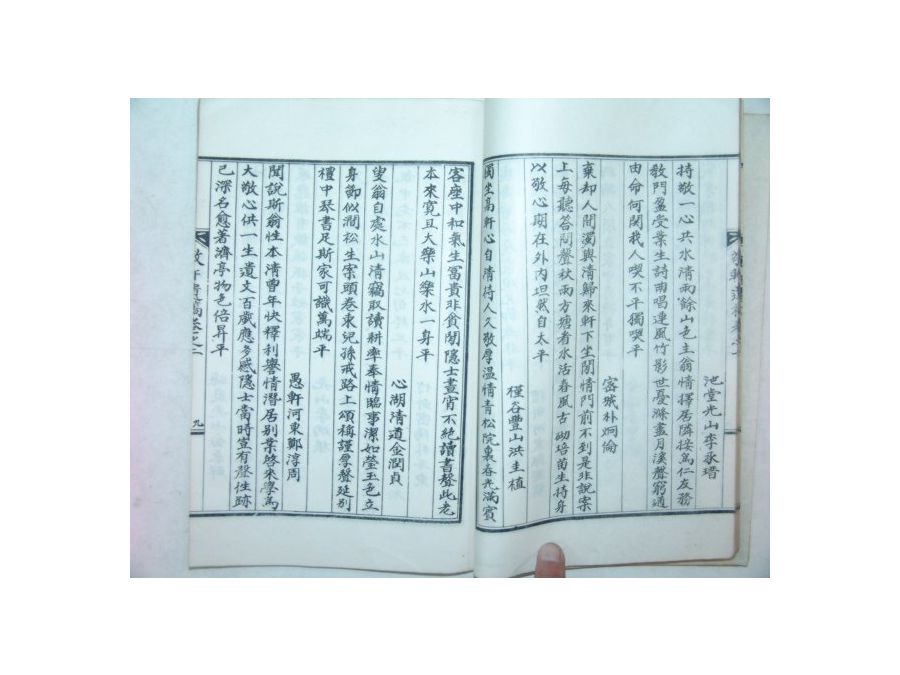 池堂光山李承瑨
持敬一心共水清雨餘山色主翁情擇居隣接爲仁友務
教門盈受業生詩曲唱連風竹影世憂滌盡月溪聲窮通
由命何関我人喫不平獨喫平
密城朴炯倫
棄却人間濁與清歸來軒下坐閒情門前不到是非說案
上每聽荅問聲秋雨方塘者水活春風古砌培苗生持身
以敬心期在外內坦然自太平
槿谷豐山洪圭植
蜀坐高軒心自清待人久敬厚温情青松院裏春光滿賓
客座中和氣生冨貴非貪閒隱士晝宵不絶讀書聲此老
本來寛且大樂山樂水一身平
心湖清道金潤貞
叟翁自處水山清竊取讀耕率奉情臨事潔如瑩玉色立
身節似澗松生案頭卷束兒孫戒路上頌稱謹厚聲延别
禮中琴書足斯家可識萬端平
愚軒河東鄭淳周
聞說斯翁性本清曾年快釋利譽情潛居别業啓來學爲
大敬心供一生遺文百歲應多感隱士當時豈有聲性跡
已深名愈著濟亭物色倍昇平
九